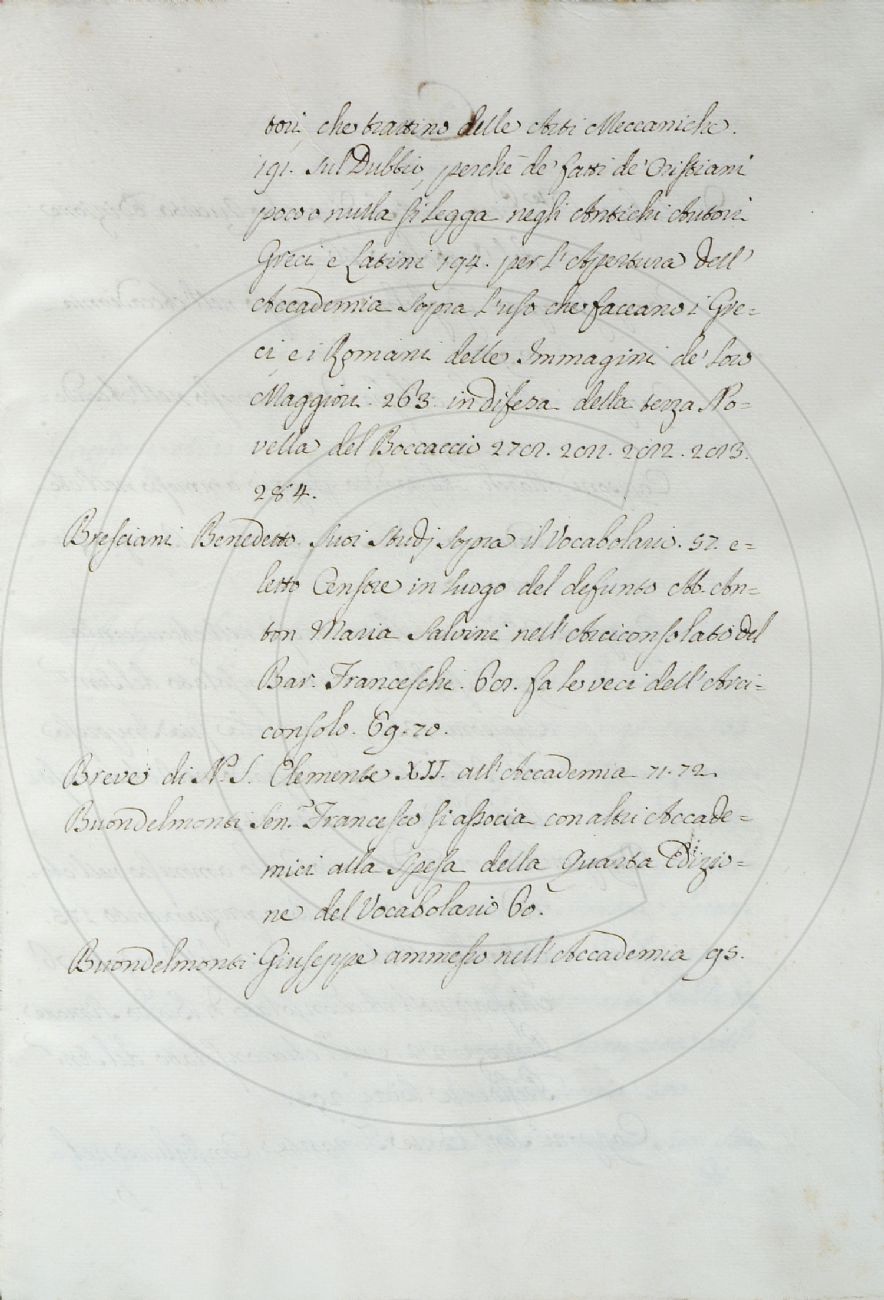 tori, che trattino delle Arti Meccaniche.
191. Sul Dubbio, perchè de' fatti de' Cristiani
poco o nulla si legga negli Antichi Autori
Greci e Latini 194. per l'Apertura dell'
Accademia Sopra l'uso che faceano i Gre=
ci, e i Romani delle Immagini de' loro
Maggiori. 263. in difesa della terza No=
vella del Boccaccio
284.
Bresciani Benedetto. Suoi Studj Sopra il Vocabolario. 57. e=
letto Censore in luogo del defunto Ab. An=
ton Maria Salvini nell'Arciconsolato del
Bar. Franceschi. fa le veci dell'Arci=
consolo. 69. 70.
Breve di N. S. Clemente XII. all'Accademia 71. 72.
Buondelmonti Sen.e Francesco si associa con altri Accade=
mici alla Spesa della Quarta Edizio=
ne del Vocabolario 60.
Buondelmonti Giuseppe ammesso nell'Accademia 95.